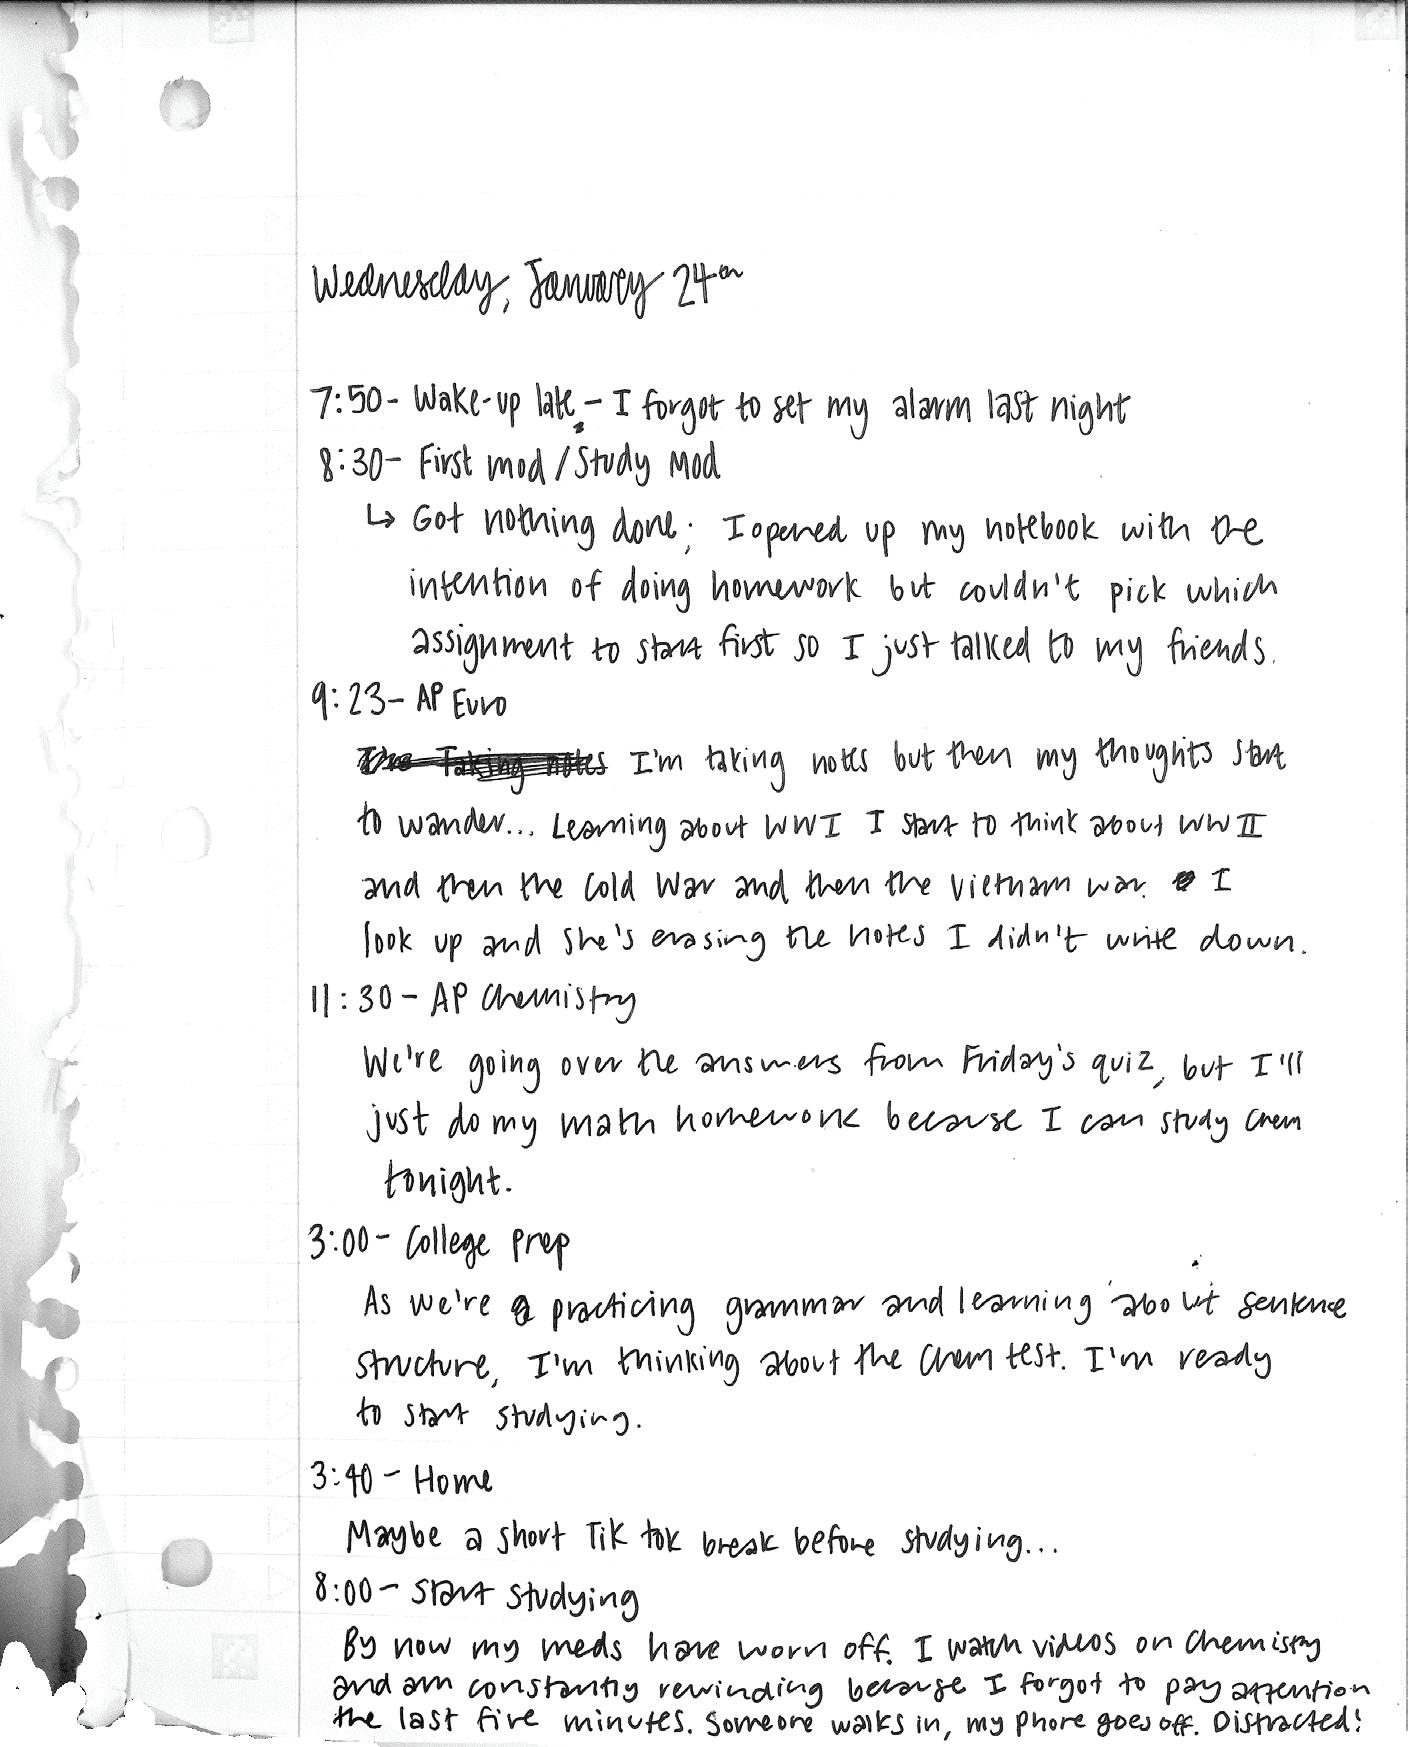 Wednesday, January 24th
7:50- Wake-up late - I forgot to set my alarm last night
8:30- First mod / Study Mod
↳ Got nothing done; I opened up my notebook with the
intention of doing homework but couldn't pick which
assignment to start first so I just talked to my friends.
9:23- AP Euro
Taking notes I'm taking notes but then my thoughts start
to wander... Learning about WWI I start to think about WWII
and then the Cold War and then the Vietnam war. I
look up and she's erasing the notes I didn't write down.
11:30- AP Chemistry
We're going over the answers from Friday's quiz, but I'll
just do my math homework because I can study chem
tonight.
3:00- College Prep
As we're practicing grammar and learning about sentence
structure, I'm thinking about the Chem test. I'm ready
to start studying.
3:40- Home
Maybe a short Tik tok break before studying...
8:00- Start Studying
By now my meds have worn off. I watch videos on Chemistry
and am constantly rewinding because I forgot to pay attention
the last five minutes. Someone walks in, my phone goes off. Distracted!